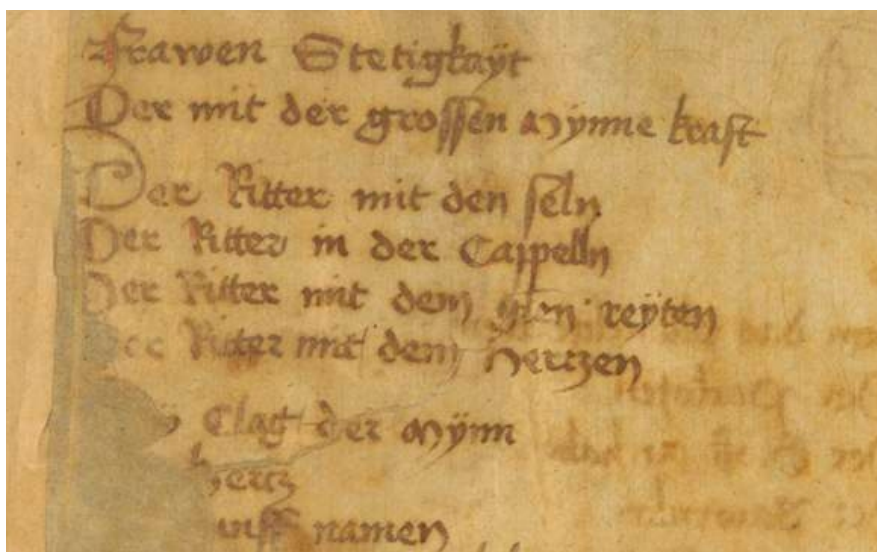 Frawen Stetigkaÿt
Der mit der grossen Mÿnne kraft
Der Ritter mit den seln
Der Ritter in der Cappelln
Der Ritter mit dem reÿten
Der Ritter mit dem Hertzen
Clag der Mÿnn
hertz
namen